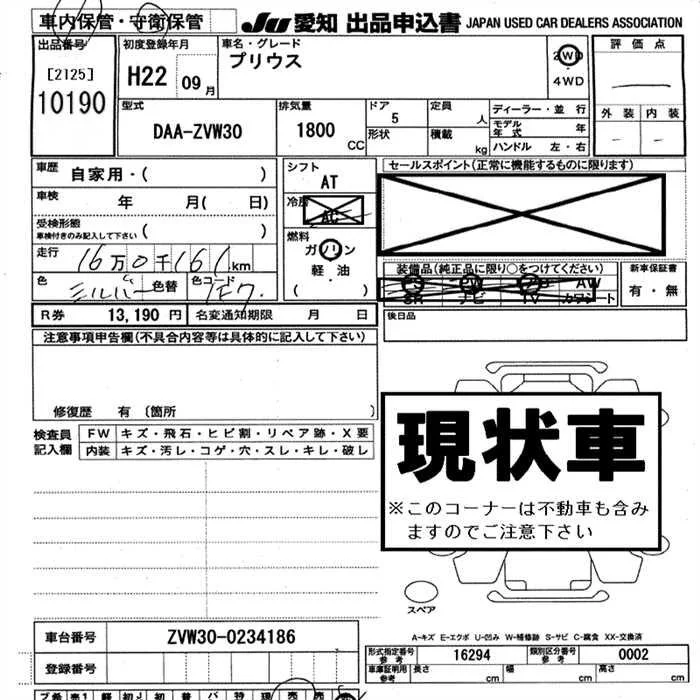 車内保管・守衛保管
JU 愛知 出品申込書 JAPAN USED CAR DEALERS ASSOCIATION
出品番号
[2125]
10190
初度登録年月
H22 09月
車名・グレード
プリウス
2WD
4WD
評価点
外装 内装
型式
DAA-ZVW30
排気量
1800 CC
ドア 5
形状
定員 人
積載 kg
ディーラー・並行
モデル年式 年
ハンドル 左・右
車歴 自家用・( )
車検 年 月( 日)
受検形態
車検付きのみ記入して下さい ( )
走行 16万0千161km
色 シルバー 色替 色コード
シフト
AT
冷房
AC
燃料
ガソリン
軽油
( )
セールスポイント(正常に機能するものに限ります)
装備品(純正品に限り○をつけてください)
PS PW AW
SR ナビ TV カワシート
新車保証書
有・無
R券 13,190円 名変通知期限 月 日
後日品
注意事項申告欄(不具合内容等は具体的に記入して下さい)
修復歴 有 〔箇所 〕
検査員記入欄
FW キズ・飛石・ヒビ割・リペア跡・X要
内装 キズ・汚レ・コゲ・穴・スレ・キレ・破レ
現状車
※このコーナーは不動車も含み
ますのでご注意下さい
スペア
A-キズ E-エクボ U-凹み W-補修跡 S-サビ C-腐食 XX-交換済
車台番号 ZVW30-0234186
登録番号
形式指定番号 参考 16294 類別区分番号 参考 0002
車庫証明用 参考 長さ cm 幅 cm 高さ cm